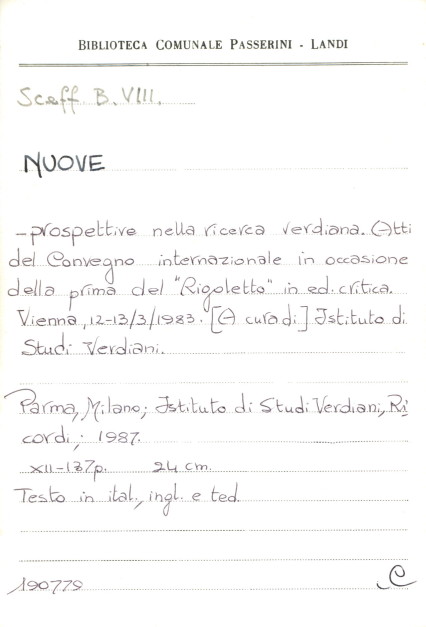 BIBLIOTECA COMUNALE PASSERINI - LANDI
Scaff. B. VIII.
NUOVE
- prospettive nella ricerca verdiana. Atti
del Convegno internazionale in occasione
della prima del "Rigoletto" in ed. critica.
Vienna, 12-13/3/1983. [A cura di] Istituto di
Studi Verdiani.
Parma, Milano; Istituto di Studi Verdiani, Ri
cordi; 1987.
XII-137p. 24 cm.
Testo in ital., ingl. e ted.
190779 C